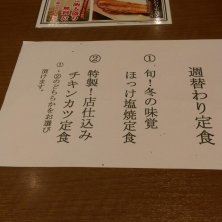 週替わり定食
① 旬！冬の味覚
ほっけ塩焼定食
② 特製！店仕込み
チキンカツ定食
①・②のどちらかをお選び
頂けます。